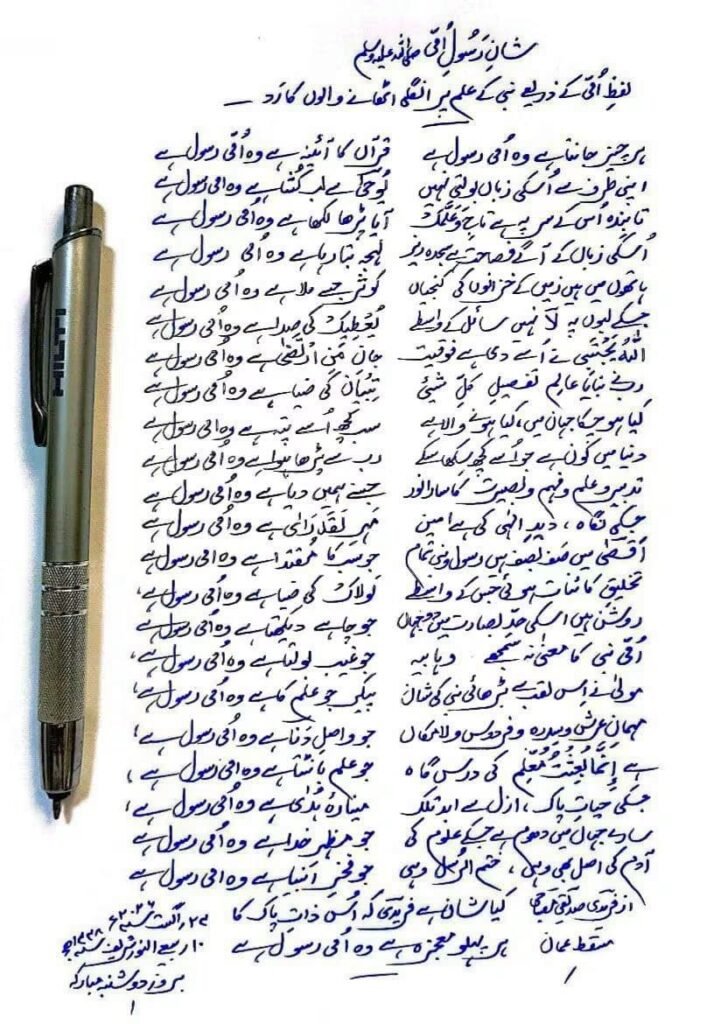 شانِ رَسُولِ اُمّی صلی اللہ علیہ وسلم
لفظِ اُمّی کے ذریعے نبی کے علم پر انگلی اٹھانے والوں کا رَد
ہر چیز جانتا ہے وہ اُمی رسول ہے قرآں کا آئینہ ہے وہ اُمّی رسول ہے
اپنی طرف سے اُسکی زباں بولتی نہیں یُوحیٰ سے لب کُشا ہے وہ امی رسول ہے
تابندہ اُس کے سر پہ ہے تاجِ وَعَلَّمَکَ آیا پڑھا لکھا ہے وہ اُمی رسول ہے
اُسکی زباں کے آگے فصاحت ہے سجدہ ریز لہجہ بتا رہا ہے وہ اُمی رسول ہے
ہاتھوں میں ہیں زمیں کے خزانوں کی کنجیاں کوثر جسے ملا ہے وہ اُمی رسول ہے
جسکے لبوں پہ لَا نہیں سائل کے واسطے یُعْطِیْکَ کی صدا ہے وہ اُمی رسول ہے
اللہُ یَجْتَبِی نے اُسے دی ہے فوقیت جانِ مَنِ ارْتَضٰی ہے وہ اُمی رسول ہے
رب نے بنایا عالمِ تفصیلِ کلِّ شیئ تِبْیَان کی ضیا ہے وہ اُمی رسول ہے
کیا ہو چکا جہان میں، کیا ہونے والا ہے سب کچھ اُسے پتہ ہے وہ امی رسول ہے
دنیا میں کون ہے جو اُسے کچھ سکھا سکے رب سے پڑھا ہوا ہے وہ اُمی رسول ہے
تدبیر و علم و فہم و بصیرت کا سارا نور جسنے ہمیں دیا ہے وہ اُمی رسول ہے
جسکی نگاہ، دیدِ الٰہی کی ہے امین مہرِ لَقَدْ رَاٰی ہے وہ اُمی رسول ہے
اَقصٰی میں صف بصف ہیں رسول و نبی تمام جو سب کا مُقتدا ہے وہ اُمی رسول ہے
تخلیقِ کائنات ہوئی جس کے واسطے لَولاک کی ضیا ہے وہ اُمی رسول ہے
روشن ہیں اسکی حدِّ بصارت میں دو جہاں جو چاہے دیکھتا ہے وہ اُمی رسول ہے
اُمّی نبی کا معنیٰ نہ سمجھے وہابیہ جو غیب بولتا ہے وہ اُمی رسول ہے
مولیٰ نے اِس لقب سے بڑھائی نبی کی شان پیکر جو علم کا ہے وہ اُمی رسول ہے
مہمانِ عرش و سدرہ و فردوس و لامکاں جو واصلِ دَنَا ہے وہ اُمی رسول ہے
ہے اِنَّمَا بُعِثْتُ مُعَلِّم کی درس گاہ جو علم بانٹتا ہے وہ امی رسول ہے
جسکی حیاتِ پاک، ازل سے ابد تلک مینارۂ ہُدٰی ہے وہ اُمی رسول ہے
سارے جہاں میں دھوم ہے جسکے علوم کی جو مظہرِ خدا ہے وہ اُمی رسول ہے
آدم کی اصل بھی وہی، ختم الرُّسل وہی جو فخرِ انبیا ہے وہ امی رسول ہے
کیا شان ہے فریدی کہ اُس ذاتِ پاک کا
ہر پہلو معجزہ ہے وہ اُمی رسول ہے
از فریدی صدیقی مصباحی
مسقط عمان
ربیع النور شریف
بروز دوشنبہ مبارکہ
HILTI